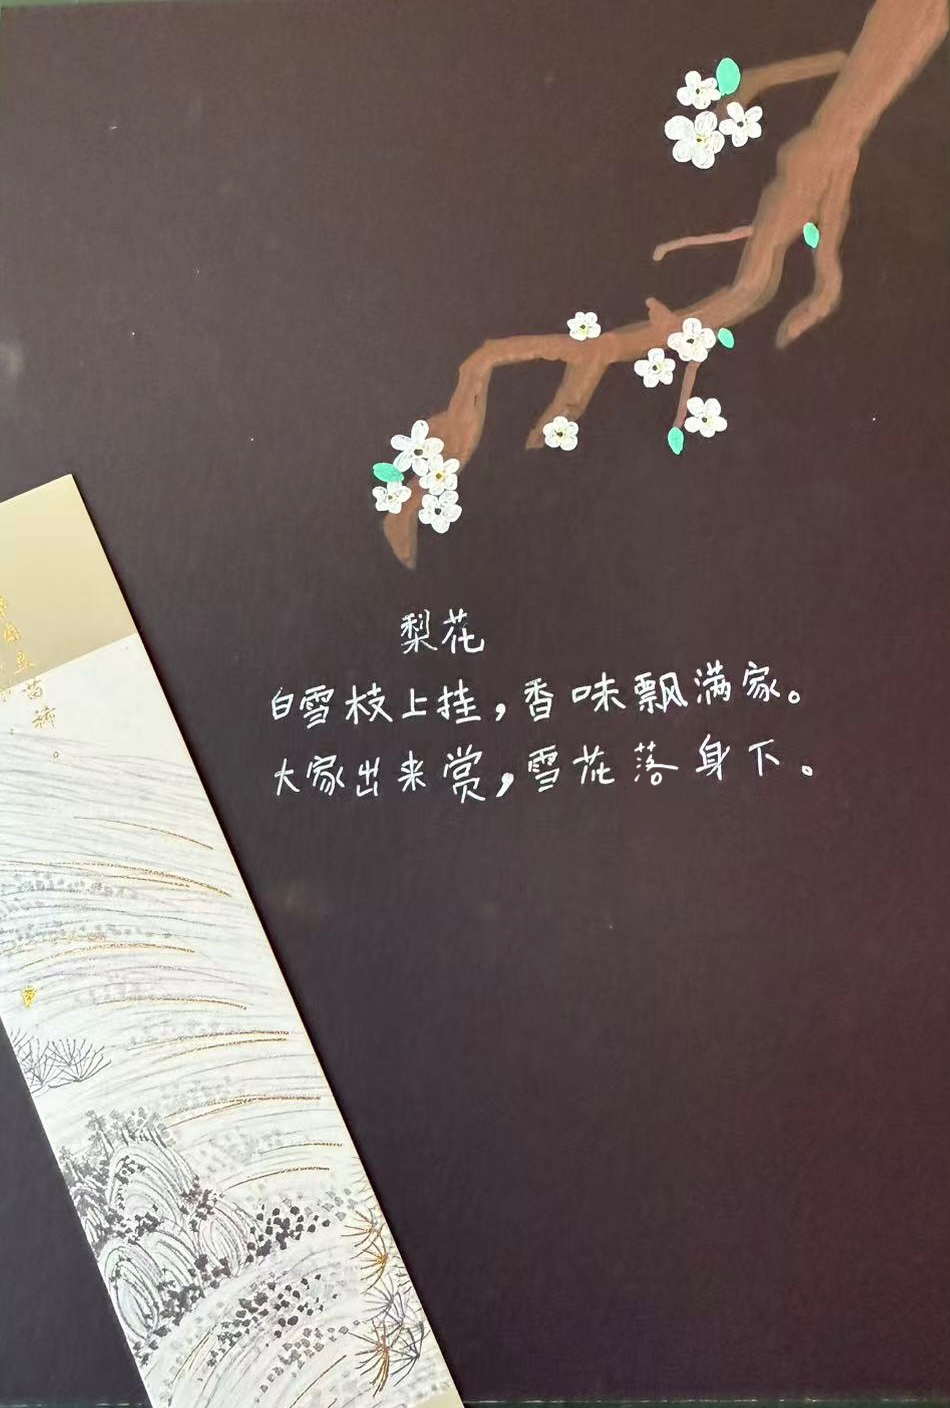 梨花
白雪枝上挂，香味飘满家。
大家出来赏，雪花落身下。